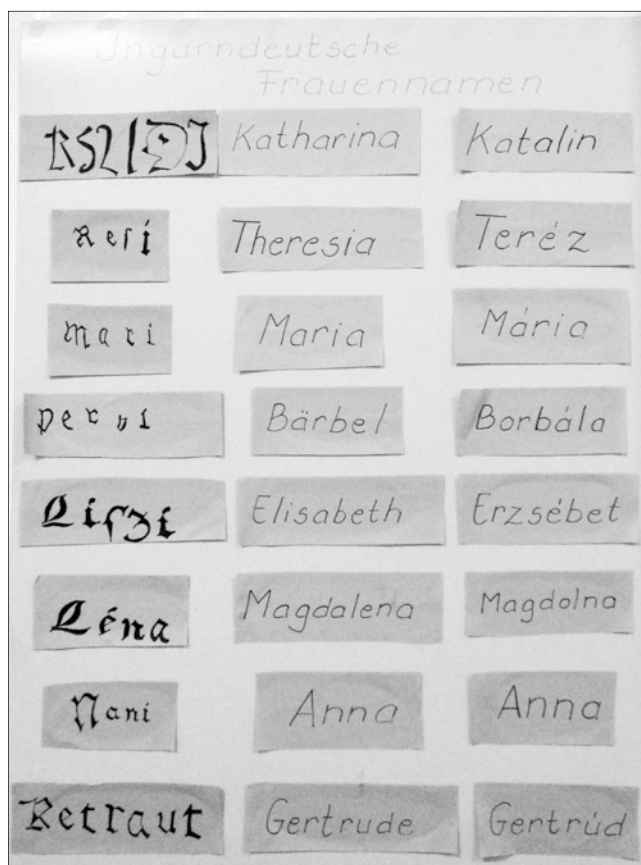 Ungarndeutsche
Frauennamen
Katharina Katalin
Resi Theresia Teréz
Mari Maria Mária
Pervi Bärbel Borbála
Liszi Elisabeth Erzsébet
Léna Magdalena Magdolna
Nani Anna Anna
Ketraut Gertrude Gertrúd